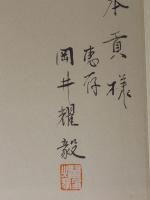 本貢様
恵存
岡井耀毅